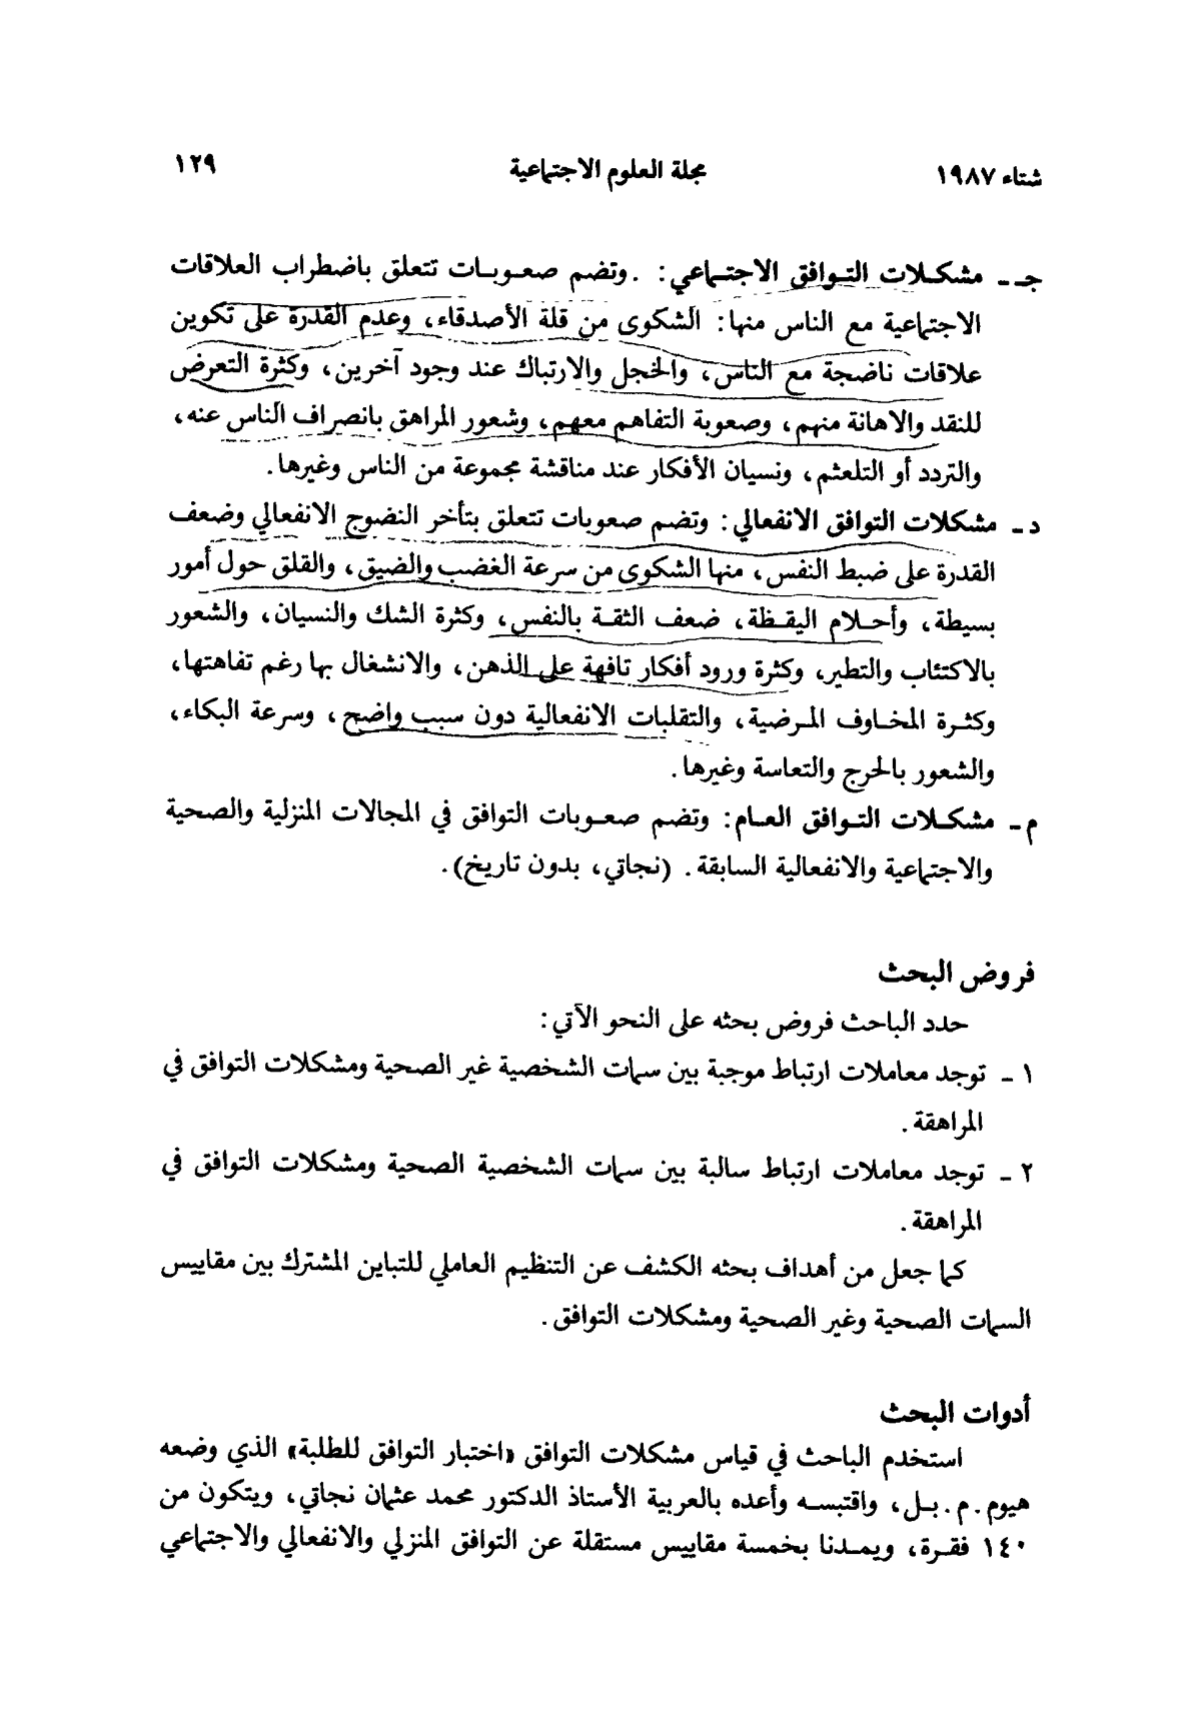 شتاء ١٩٨٧ مجلة العلوم الاجتماعية ١٢٩
جـ - مشكلات التوافق الاجتماعي: . وتضم صعوبات تتعلق باضطراب العلاقات
الاجتماعية مع الناس منها: الشكوى من قلة الأصدقاء، وعدم القدرة على تكوين
علاقات ناضجة مع الناس، والخجل والارتباك عند وجود آخرين، وكثرة التعرض
للنقد والاهانة منهم، وصعوبة التفاهم معهم، وشعور المراهق بانصراف الناس عنه،
والتردد أو التلعثم، ونسيان الأفكار عند مناقشة مجموعة من الناس وغيرها.
د - مشكلات التوافق الانفعالي: وتضم صعوبات تتعلق بتأخر النضوج الانفعالي وضعف
القدرة على ضبط النفس، منها الشكوى من سرعة الغضب والضيق، والقلق حول أمور
بسيطة، وأحلام اليقظة، ضعف الثقة بالنفس، وكثرة الشك والنسيان، والشعور
بالاكتئاب والتطير، وكثرة ورود أفكار تافهة على الذهن، والانشغال بها رغم تفاهتها،
وكثرة المخاوف المرضية، والتقلبات الانفعالية دون سبب واضح، وسرعة البكاء،
والشعور بالحرج والتعاسة وغيرها.
م - مشكلات التوافق العام: وتضم صعوبات التوافق في المجالات المنزلية والصحية
والاجتماعية والانفعالية السابقة. (نجاتي، بدون تاريخ).
فروض البحث
حدد الباحث فروض بحثه على النحو الآتي:
١ - توجد معاملات ارتباط موجبة بين سمات الشخصية غير الصحية ومشكلات التوافق في
المراهقة.
٢ - توجد معاملات ارتباط سالبة بين سمات الشخصية الصحية ومشكلات التوافق في
المراهقة.
كما جعل من أهداف بحثه الكشف عن التنظيم العاملي للتباين المشترك بين مقاييس
السمات الصحية وغير الصحية ومشكلات التوافق.
أدوات البحث
استخدم الباحث في قياس مشكلات التوافق «اختبار التوافق للطلبة» الذي وضعه
هيوم. م. بل، واقتبسه وأعده بالعربية الأستاذ الدكتور محمد عثمان نجاتي، ويتكون من
١٤٠ فقرة، ويمدنا بخمسة مقاييس مستقلة عن التوافق المنزلي والانفعالي والاجتماعي